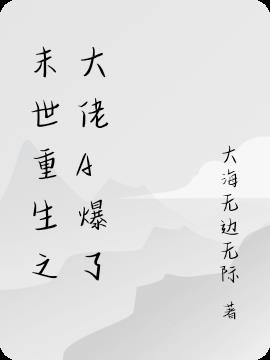 末世重生之
大佬A爆了
大海无边无际 著